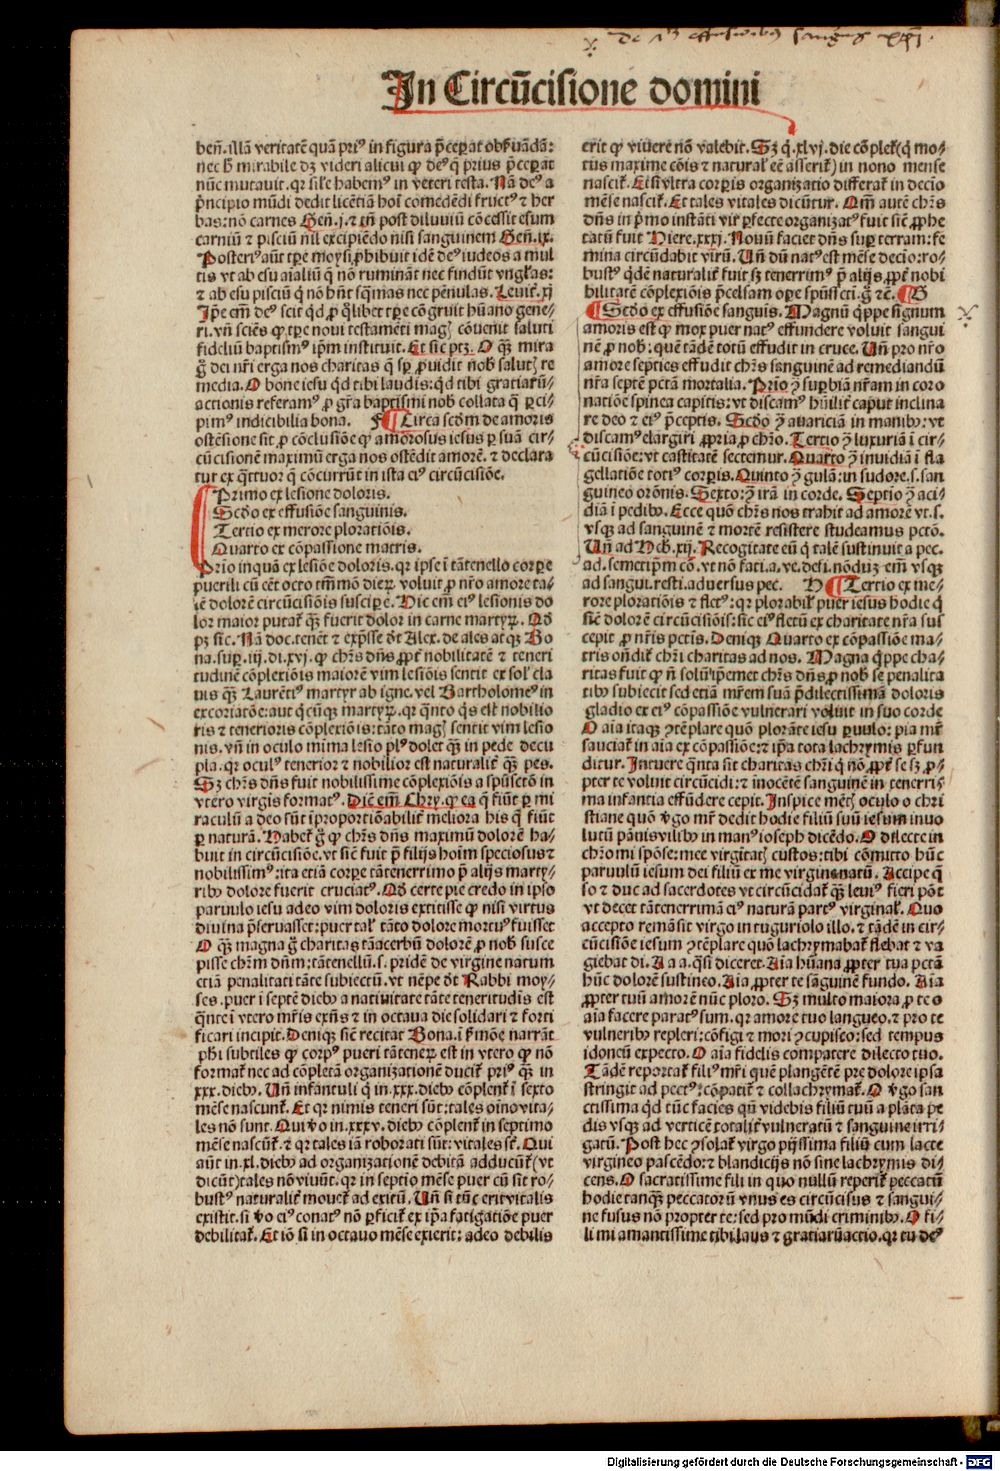 de 7ē effusionibus sanguis xpi.
In Circūcisione domini
beñ. illã veritatē quã priꝰ in figura p̄ceꝑat obẜuãdã:
nec hͦ mirabile dꝫ videri alicui qͥ deꝰ q̄ prius p̄ceꝑat
nūc mutauit. qꝛ siĺe habemꝰ in veteri testa. Nã deꝰ a
pͥncipio mūdi dedit licētiã hoī comedēdi fructꝰ ⁊ her
bas: nō carnes Gen̄. j. ⁊ tn̄ post diluuiū cōcessit esum
carniū ⁊ pisciū nil excipiēdo nisi sanguinem Gen̄. ix.
Posteriꝰ aūt tꝑe moysi ꝓhibuit idē deꝰ iudeos a mul
tis vt ab esu aīaliū q̄ nō ruminãt nec findūt vngĺas:
⁊ ab esu pisciū q̄ nō hn̄t sq̄mas nec pēnulas. Leuit̄. xj
Ip̄e em̄ deꝰ scit qd̄ ꝓ qͦlibet tꝑe cōgruit hūano gene/
ri. vn̄ sciēs ꝙ tꝑe noui testamēti magꝭ cōuenit saluti
fideliū baptismꝰ ip̄m instituit. Et sic ptꝫ. O qͣꝫ mira
g̊ dei nr̄i erga nos charitas q̄ sꝑ ꝓuidit nob̄ salutꝭ re
media. O bone iesu qd̄ tibi laudis: qd̄ tibi gratiaꝝ/
actionis referamꝰ ꝓ gr̄a baptismi nob̄ collata q̄ ꝑci/
pimꝰ indicibilia bona. F ¶ Circa scd̄m de amoris
ostēsione sit ꝓ cōclusiōe ꝙ amorosus iesus ꝑ suã cir/
cūcisionē maximū erga nos ostēdit amorē. ⁊ declara
tur ex qͣttuor q̄ cōcurrūt in ista eiꝰ circūcisiōe.
Primo ex lesione doloris.
Scd̄o ex effusiōe sanguinis.
Tertio ex merore ploratiōis.
Quarto ex cōpassione matris.
Prīo inquã ex lesiōe doloris. qꝛ ipse ī tãtenello corꝑe
puerili cū eēt octo tm̄ mō dieꝝ. voluit ꝓ nr̄o amore ta/
lē dolorē circūcisiōis susciꝑe. Hic em̄ eiꝰ lesionis do
lor maior putat̄ qͣꝫ fuerit dolor in carne martyꝝ. Qd̄
pꝫ sic. Nã doc. tenēt ⁊ exp̄sse dr̄t Alex. de ales atqꝫ Bo
na. suꝑ. iij. di. xvj. ꝙ chr̄s dn̄s ꝓpt̄ nobilitatē ⁊ teneri
tudinē cōplexiōis maiorē vim lesiōis sentit ex solꝰ cla
uis qͣꝫ Laurētiꝰ martyr ab igne. vel Bartholomeꝰ in
excoriatōe: aut q̄cūqꝫ martyꝝ. qꝛ qͣnto q̄s est nobilio
ris ⁊ tenerioris cōplexiōis: tãto magꝭ sentit vim lesio
nis. vn̄ in oculo mīma lesio plꝰ dolet qͣꝫ in pede decu
pla. qꝛ oculꝰ tenerior ⁊ nobilior est naturalit̄ qͣꝫ pes.
Sꝫ chr̄s dn̄s fuit nobilissime cōplexiōis a spūsctō in
vtero virgis formatꝰ. Dic̄ em̄ Chry. ꝙ ea q̄ fiūt ꝑ mi
raculū a deo sūt īproportiōabilit̄ meliora his q̄ fiūt
ꝑ naturã. Habet̄ g̊ ꝙ chr̄s dn̄s maximū dolorē ha/
buit in circūcisiōe. vt sic̄ fuit p̄ filijs hoīm speciosus ⁊
nobilissimꝰ: ita etiã corꝑe tãtenerrimo p̄ alijs marty/
ribꝰ dolore fuerit cruciatꝰ. Qd̄ certe pie credo in ipso
paruulo iesu adeo vim doloris extitisse ꝙ nisi virtus
diuina p̄seruasset: puer tal̄ tãto dolore mortuꝰ fuisset
O qͣꝫ magna g̊ charitas tãacerbū dolorē ꝓ nob̄ susce
pisse chr̄m dn̄m: tãtenellū. s. pridē de virgine natum
etiã penalitati tãte subiectū. vt nēpe dr̄t Rabbi moy/
ses. puer ī septē diebꝰ a natiuitate tãte teneritudīs est
qͣnte ī vtero mr̄is exn̄s ⁊ in octaua die solidari ⁊ forti
ficari incipit. Deniqꝫ sic̄ recitat Bona. ī ẜmōe narrãt
ph̄i subtiles ꝙ corpꝰ pueri tãteneꝝ est in vtero ꝙ nō
format̄ nec ad cōpletã organizationē ducit̄ priꝰ qͣꝫ in
xxx. diebꝰ. Vn̄ infantuli q̄ in. xxx. diebꝰ cōplent̄ ī sexto
mēse nascunt̄. Et qꝛ nimis teneri sūt: tales oīno vita/
les nō sunt. Qui v̊o in. xxxv. diebꝰ cōplent̄ in septimo
mēse nascūt̄. ⁊ qꝛ tales iã roborati sūt: vitales sc̄. Qui
aūt in. xl. diebꝰ ad organizationē debitã adducūt̄ (vt
dicūt) tales nō viuūt. qꝛ in septīo mēse puer cū sit ro/
bustꝰ naturalit̄ mouet̄ ad exitū. Vn̄ si tūc erit vitalis
existit. si v̊o eiꝰ conatꝰ nō ꝑficit̄ ex ip̄a fatigatiōe puer
debilitat̄. Et iō si in octauo mēse exierit: adeo debilis
erit ꝙ viuere nō valebit. Sꝫ q̄. xlvj. die cōplet̄ (q̄ mo/
tus maxime cōis ⁊ natural̄ eē asserit̄) in nono mense
nascit̄. Et si vltra corꝑis organizatio differat̄ in decīo
mēse nascit̄. Et tales vitales dicūtur. Qm̄ autē chr̄s
dn̄s in pͥmo instãti vir ꝑfecte organizatꝰ fuit sic̄ ꝓphe
tatū fuit Hiere. xxxj. Nouū faciet dn̄s suꝑ terram: fe
mina circūdabit virū. Vn̄ dū natꝰ est mēse decīo: ro/
bustꝰ qͥdē naturalit̄ fuit sꝫ tenerrimꝰ p̄ alijs. ꝓpt̄ nobi
bilitatē cōplexiōis p̄celsam oꝑe spūssctī. g̊ ⁊c̄. ¶ G
¶ Scd̄o ex effusiōe sanguis. Magnū qͥppe signum
amoris est ꝙ mox puer natꝰ effundere voluit sangui
nē ꝓ nob̄: quē tãdē totū effudit in cruce. Vn̄ pro nr̄o
amore septies effudit chr̄s sanguinē ad remediandū
nr̄a septē pctã mortalia. Prīo ꝯ suꝑbiã nr̄am in coro
natiōe spinea capitis: vt discamꝰ hūilit̄ caput inclina
re deo ⁊ eiꝰ p̄ceptis. Scd̄o ꝯ auariciã in manibꝰ: vt
discamꝰ elargiri ꝓpria ꝓ chr̄o. Tertio ꝯ luxuriã ī cir/
cūcisiōe: vt castitatē sectemur. Quarto ꝯ inuidiã ī fla
gellatiōe totiꝰ corꝑis. Quinto ꝯ gulã: in sudore. s. san
guineo orōnis. Sexto: ꝯ irã in corde. Septīo ꝯ aci/
diã ī pedibꝰ. Ecce quō chr̄s nos trahit ad amorē vt. s.
vsqꝫ ad sanguinē ⁊ mortē resistere studeamus pctō.
Vn̄ ad Heb̄. xij. Recogitate eū q̄ talē sustinuit a pec.
ad. semetip̄m cō. vt nō fati. a. ve. defi. nōduꝫ em̄ vsqꝫ
ad sangui. resti. aduersus pec. H ¶ Tertio ex me/
rore ploratiōis ⁊ fletꝰ: qꝛ plorabit̄ puer iesus hodie q̄
sic̄ dolorē circūcisiōis: sic eiꝰ fletū ex charitate nr̄a sus
cepit ꝓ nr̄is pctis. Deniqꝫ Quarto ex cōpassiōe ma/
tris on̄dit̄ chr̄i charitas ad nos. Magna qͥppe cha/
ritas fuit ꝙ n̄ solū ip̄emet chr̄s dn̄s ꝓ nob̄ se penalita
tibꝰ subiecit sed etiã mr̄em suã p̄dilectissimã doloris
gladio ex eiꝰ cōpassiōe vulnerari voluit in suo corde
O aīa itaqꝫ ꝯtēplare quō plorãte iesu ꝑuulo: pia mr̄
sauciat̄ in aīa ex cōpassiōe: ⁊ ip̄a tota lachrymis ꝑfun
ditur. Intuere qͣnta sit charitas chr̄i q̄ nō ꝓpt̄ se sꝫ ꝓ/
pter te voluit circūcidi: ⁊ īnocētē sanguinē in tenerri/
ma infantia effūdere cepit. Inspice mētꝭ oculo o chri
stiane quō v̄go mr̄ dedit hodie filiū suū iesum inuo
lutū pãnis vilibꝰ in manꝰ ioseph dicēdo. O dilecte in
chr̄o mi spōse: mee virgītatꝭ custos: tibi cōmitto hūc
paruulū iesum dei filiū ex me virgine natū. Accipe q̄
so ⁊ duc ad sacerdotes vt circūcidat̄ qͣꝫ leuiꝰ fieri pōt
vt decet tãtenerrimã eiꝰ naturã partꝰ virginal̄. Quo
accepto remãsit virgo in tuguriolo illo. ⁊ tãdē in cir/
cūcisiōe iesum ꝯtēplare quō lachrymabat̄ flebat ⁊ va
giebat di. A a a. qͣsi diceret. Aīa hūana ꝓpter tua pctã
hūc dolorē sustineo. Aīa ꝓpter te sanguinē fundo. Aīa
ꝓpter tuū amorē nūc ploro. Sꝫ multo maiora ꝓ te o
aīa facere paratꝰ sum. qꝛ amore tuo langueo. ⁊ pro te
vulneribꝰ repleri: cōfigi ⁊ mori ꝯcupisco: sed tempus
idoneū expecto. O aīa fidelis compatere dilecto tuo.
Tãdē reportat̄ filiꝰ mr̄i quē plangētē pre dolore ipsa
stringit ad pectꝰ: cōpatit̄ ⁊ collachrymat̄. O v̄go san
ctissima qd̄ tūc facies qn̄ videbis filiū tuū a plãta pe
dis vsqꝫ ad verticē totalit̄ vulneratū ⁊ sanguine irri/
gatū. Post hec ꝯsolat̄ virgo pijssima filiū cum lacte
virgineo pascēdo: ⁊ blandicijs nō sine lachrymis di/
cens. O sacratissime fili in quo nullū reperit̄ peccatū
hodie tanqͣꝫ peccatorū vnus es circūcisus ⁊ sangui/
ne fusus nō propter te: sed pro mūdi criminibꝰ. O fi/
li mi amantissime tibi laus ⁊ gratiaꝝactio. qꝛ tu deꝰ
Digitalisierung gefördert durch die Deutsche Forschungsgemeinschaft - DFG